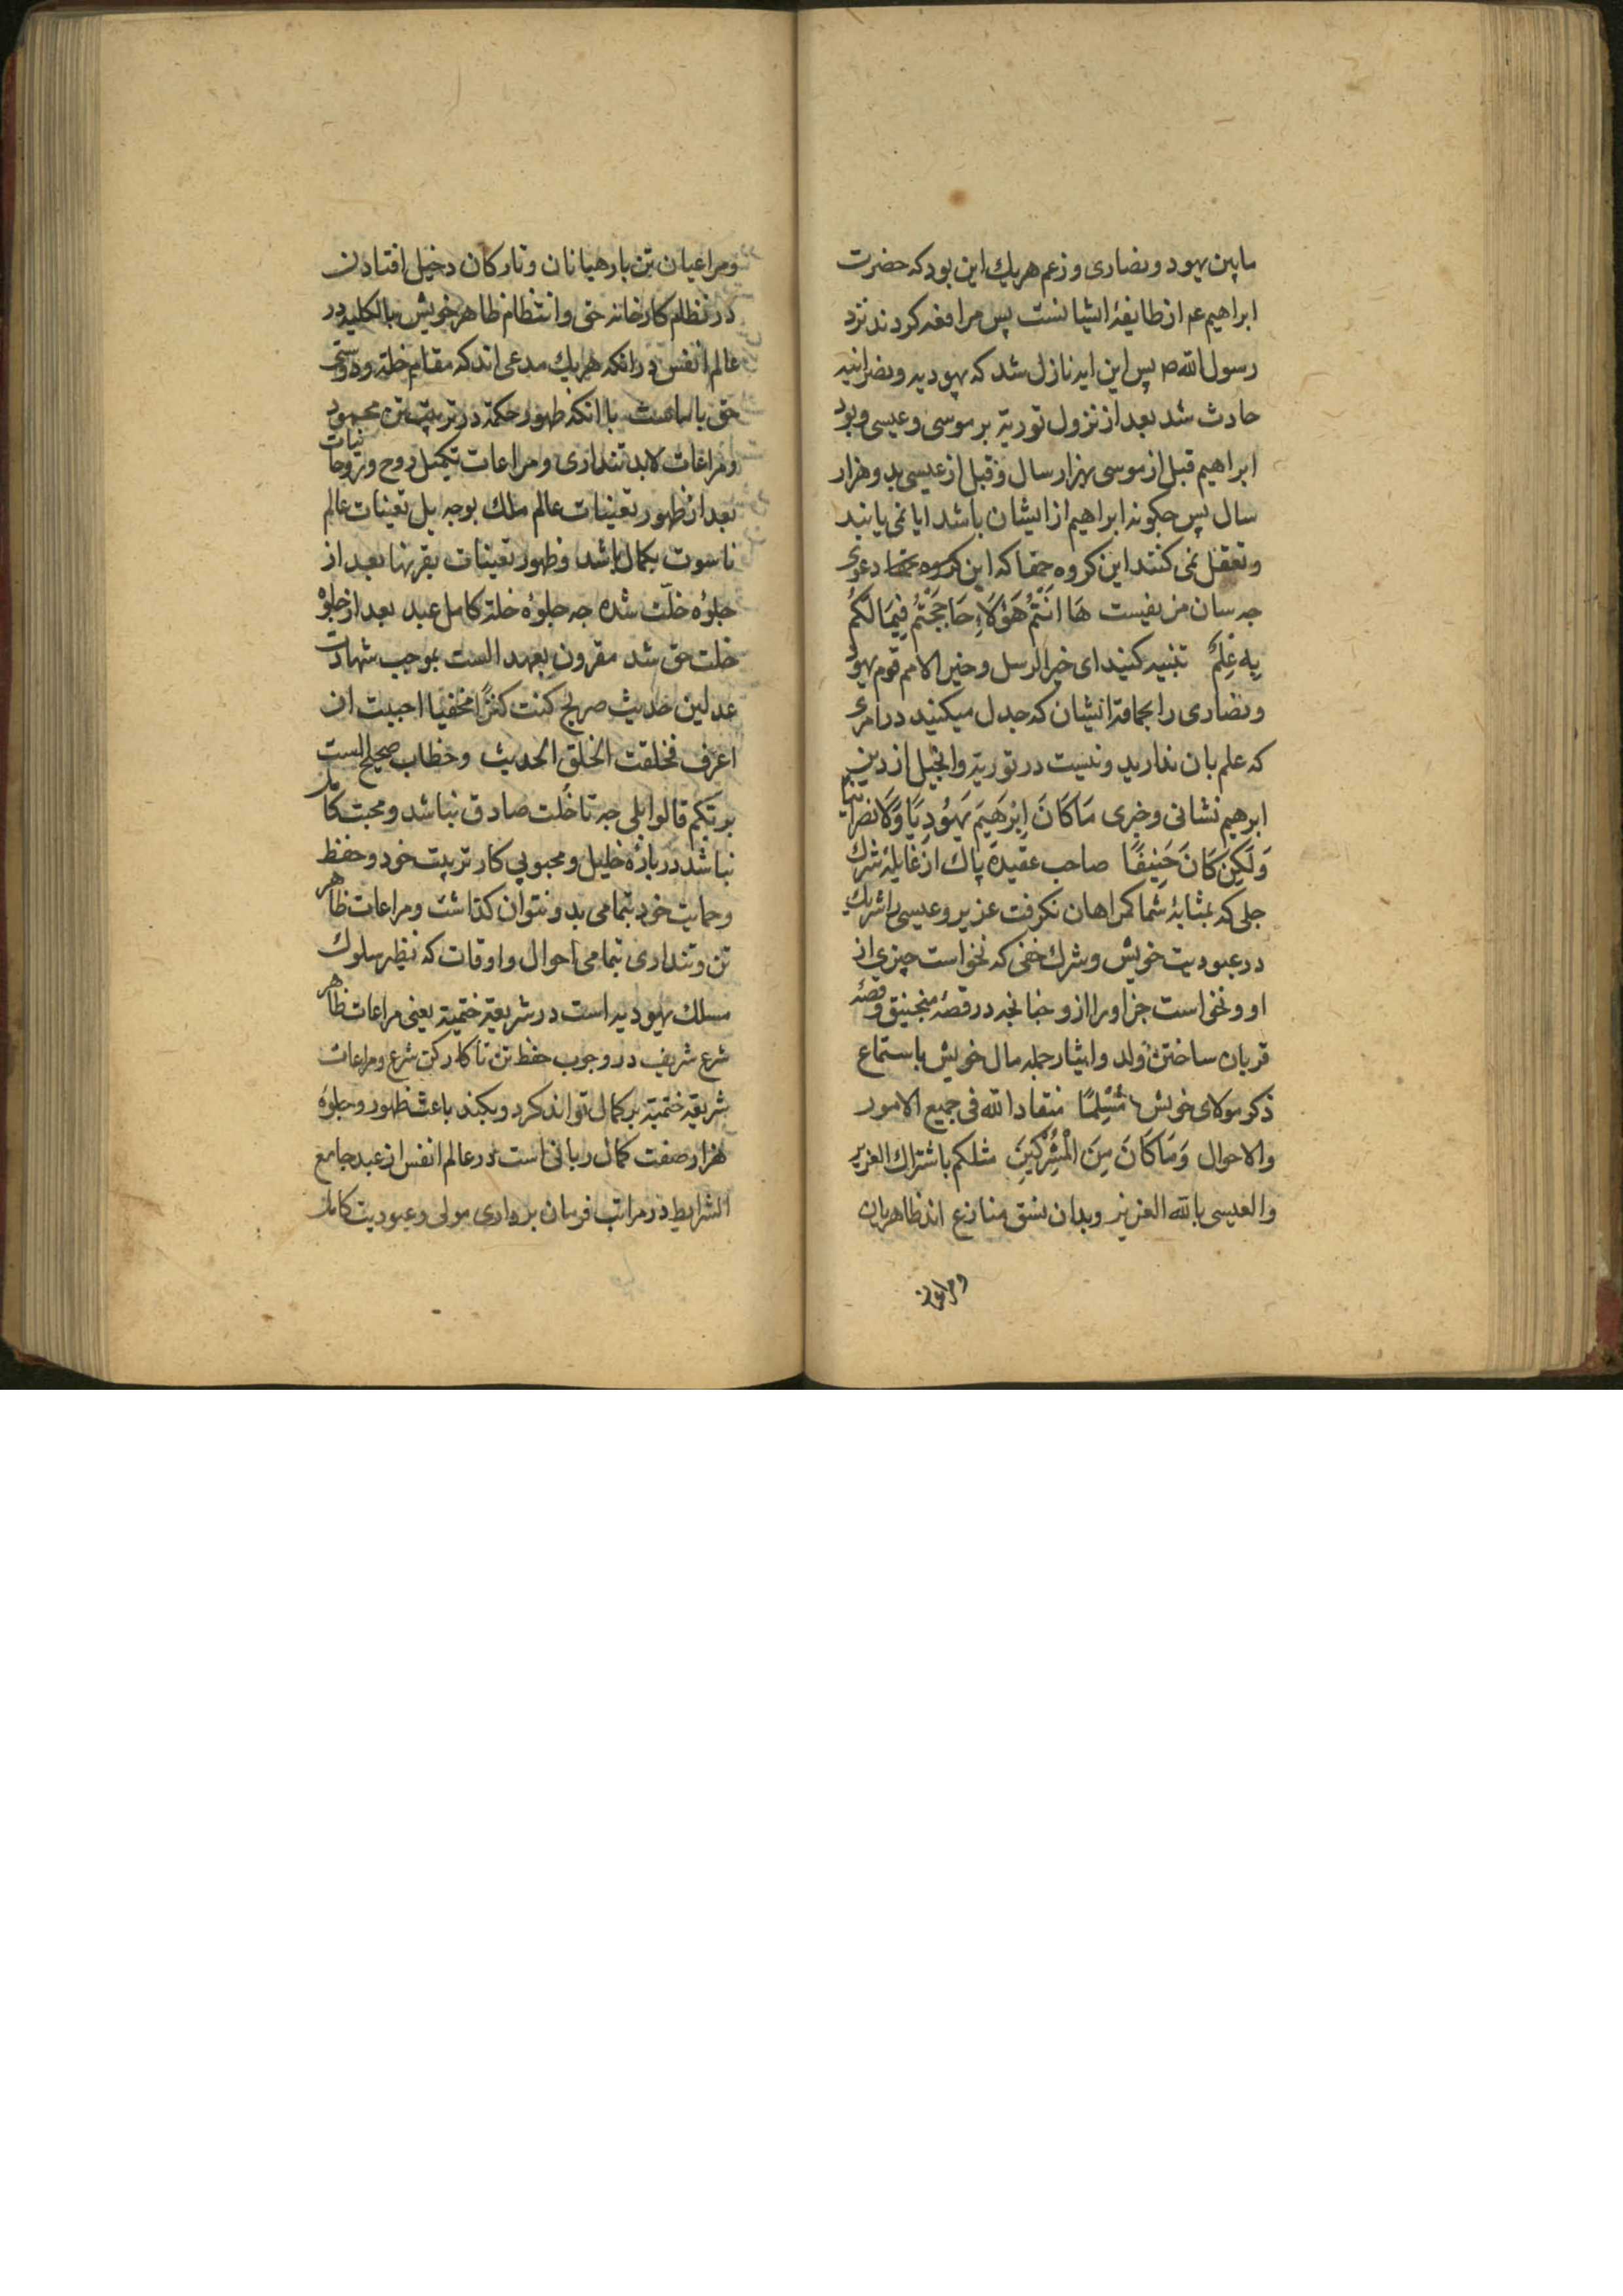 مابین یهود و نصاری و زعم هریك این بود که حضرت
ابراهیم عم از طایفهٔ ایشانست پس مرافعه کردند نزد
رسول الله ص پس این ایه نازل شد که یهودیه و نصرانیه
حادث شد بعد از نزول توریة بر موسی و عیسی و بود
ابراهیم قبل از موسی بهزار سال و قبل از عیسی بدو هزار
سال پس جکونه ابراهیم از ایشان باشد ایا نمی یابند
و تعقل نمی کنند این کروه حقا که این کروه دعوی
جه سان من بفیست هَا اَنْتُمْ هَؤُلَاءِ حَاجَجْتُمْ فِیمَا لَکُمْ
بِهِ عِلْمٌ تنبیه کنید ای خیر الرسل و خیر الامم قوم یهود
و نصاری را بحماقة انشان که جدل میکنید در امری
که علم بان ندارید و نیست در توریة و انجیل از دین
ابرهیم نشانی و خبری مَا کَانَ اِبْرَهِیمُ یَهُودِیًّا وَلَا نصرانیا
وَلَکِنْ کَانَ حَنِیفًا صاحب عقیدهٔ پاك از غایلهٔ شرك
جلی که بمثابهٔ شما کمراهان نکرفت عزیر و عیسی را شریك
در عبودیت خویش و شرك خفی که نخواست چیزی از
او و نخواست جز او را از و جنانجه در قصهٔ منجنیق و قصهٔ
قربان ساختن ولد و ایثار جمله مال خویش باستماع
ذکر مولای خویش مُسْلِمًا منقادا لله فی جمیع الامور
والاحوال وَمَا کَانَ مِنَ الْمُشْرِکِینَ مثلکم باشتراك العزیر
والعیسی بالله العزیز و بدان نسق منازع اند ظاهریان
و مراعیان
و مراعیان تن بارهبانان و تارکان دخیل افتادن
در نظام کارخانه حق و انتظام ظاهر خویش بالکلیه در
عالم انفس در انکه هریك مدعی اند که مقام خلة و دوستی
حق با ماست با انکه ظهور حکمة در تربیت تن محمود
و مراعات لابد تنداری و مراعات تکمیل روح و تروحات
بعد از ظهور تعینات عالم ملك بوجه بل تعینات عالم
ناسوت بکمال باشد و ظهور تعینات بقربها بعد از
جلوه خلّت شده جه جلوهٔ خلة کامل عبد بعد از جلوهٔ
خلت حق شد مقرون بعهد الست بموجب شهادت
عدلین حدیث صریح کنت کنزًا مخفیا احببت ان
اعرف فخلقت الخلق الحدیث و خطاب صحیح الست
بربّکم قالوا بلی جه تا خلّت صادق نباشد و محبت کامل
نباشد در بارهٔ خلیل و محبوبی کار تربیت خود و حفظ
و حمایت خود بتمامی بدو نتوان کذاشت و مراعات ظاهر
تن و تنداری بتمامی احوال و اوقات که نظیر سلوك
مسلك یهودیه است در شریعة ختمیة یعنی مراعات ظاهر
شرع شریف در وجوب حفظ تن تا کار کن شرع و مراعات
شریعة ختمیة بر کمال تواند کرد و بکند باعث ظهور و جلوهٔ
هزار صفت کمال ربانی است در عالم انفس از عبد جامع
الشرایط در مراتب فرمان برداری مولی و عبودیت کامل